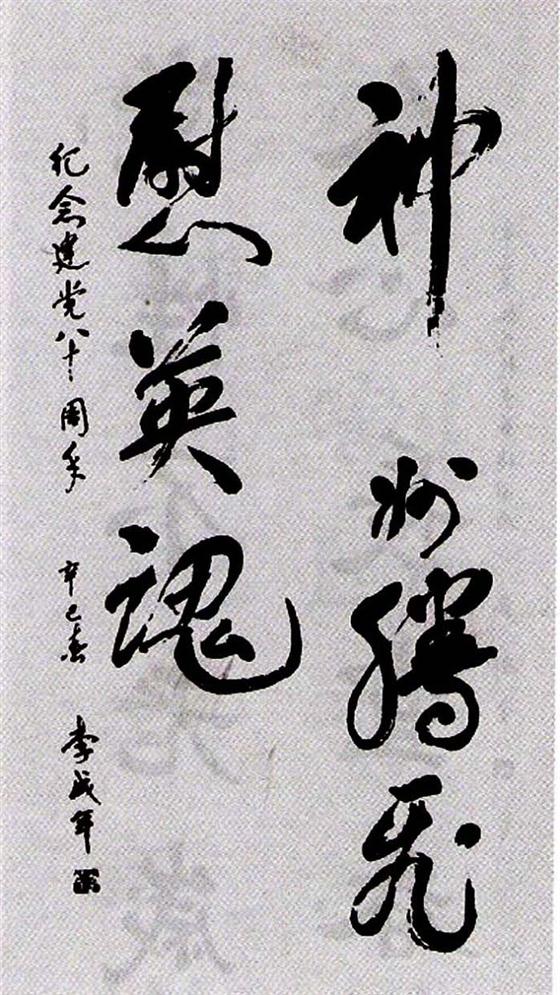 神州腾飞
慰英魂
纪念建党八十周年 辛巳春 李成年